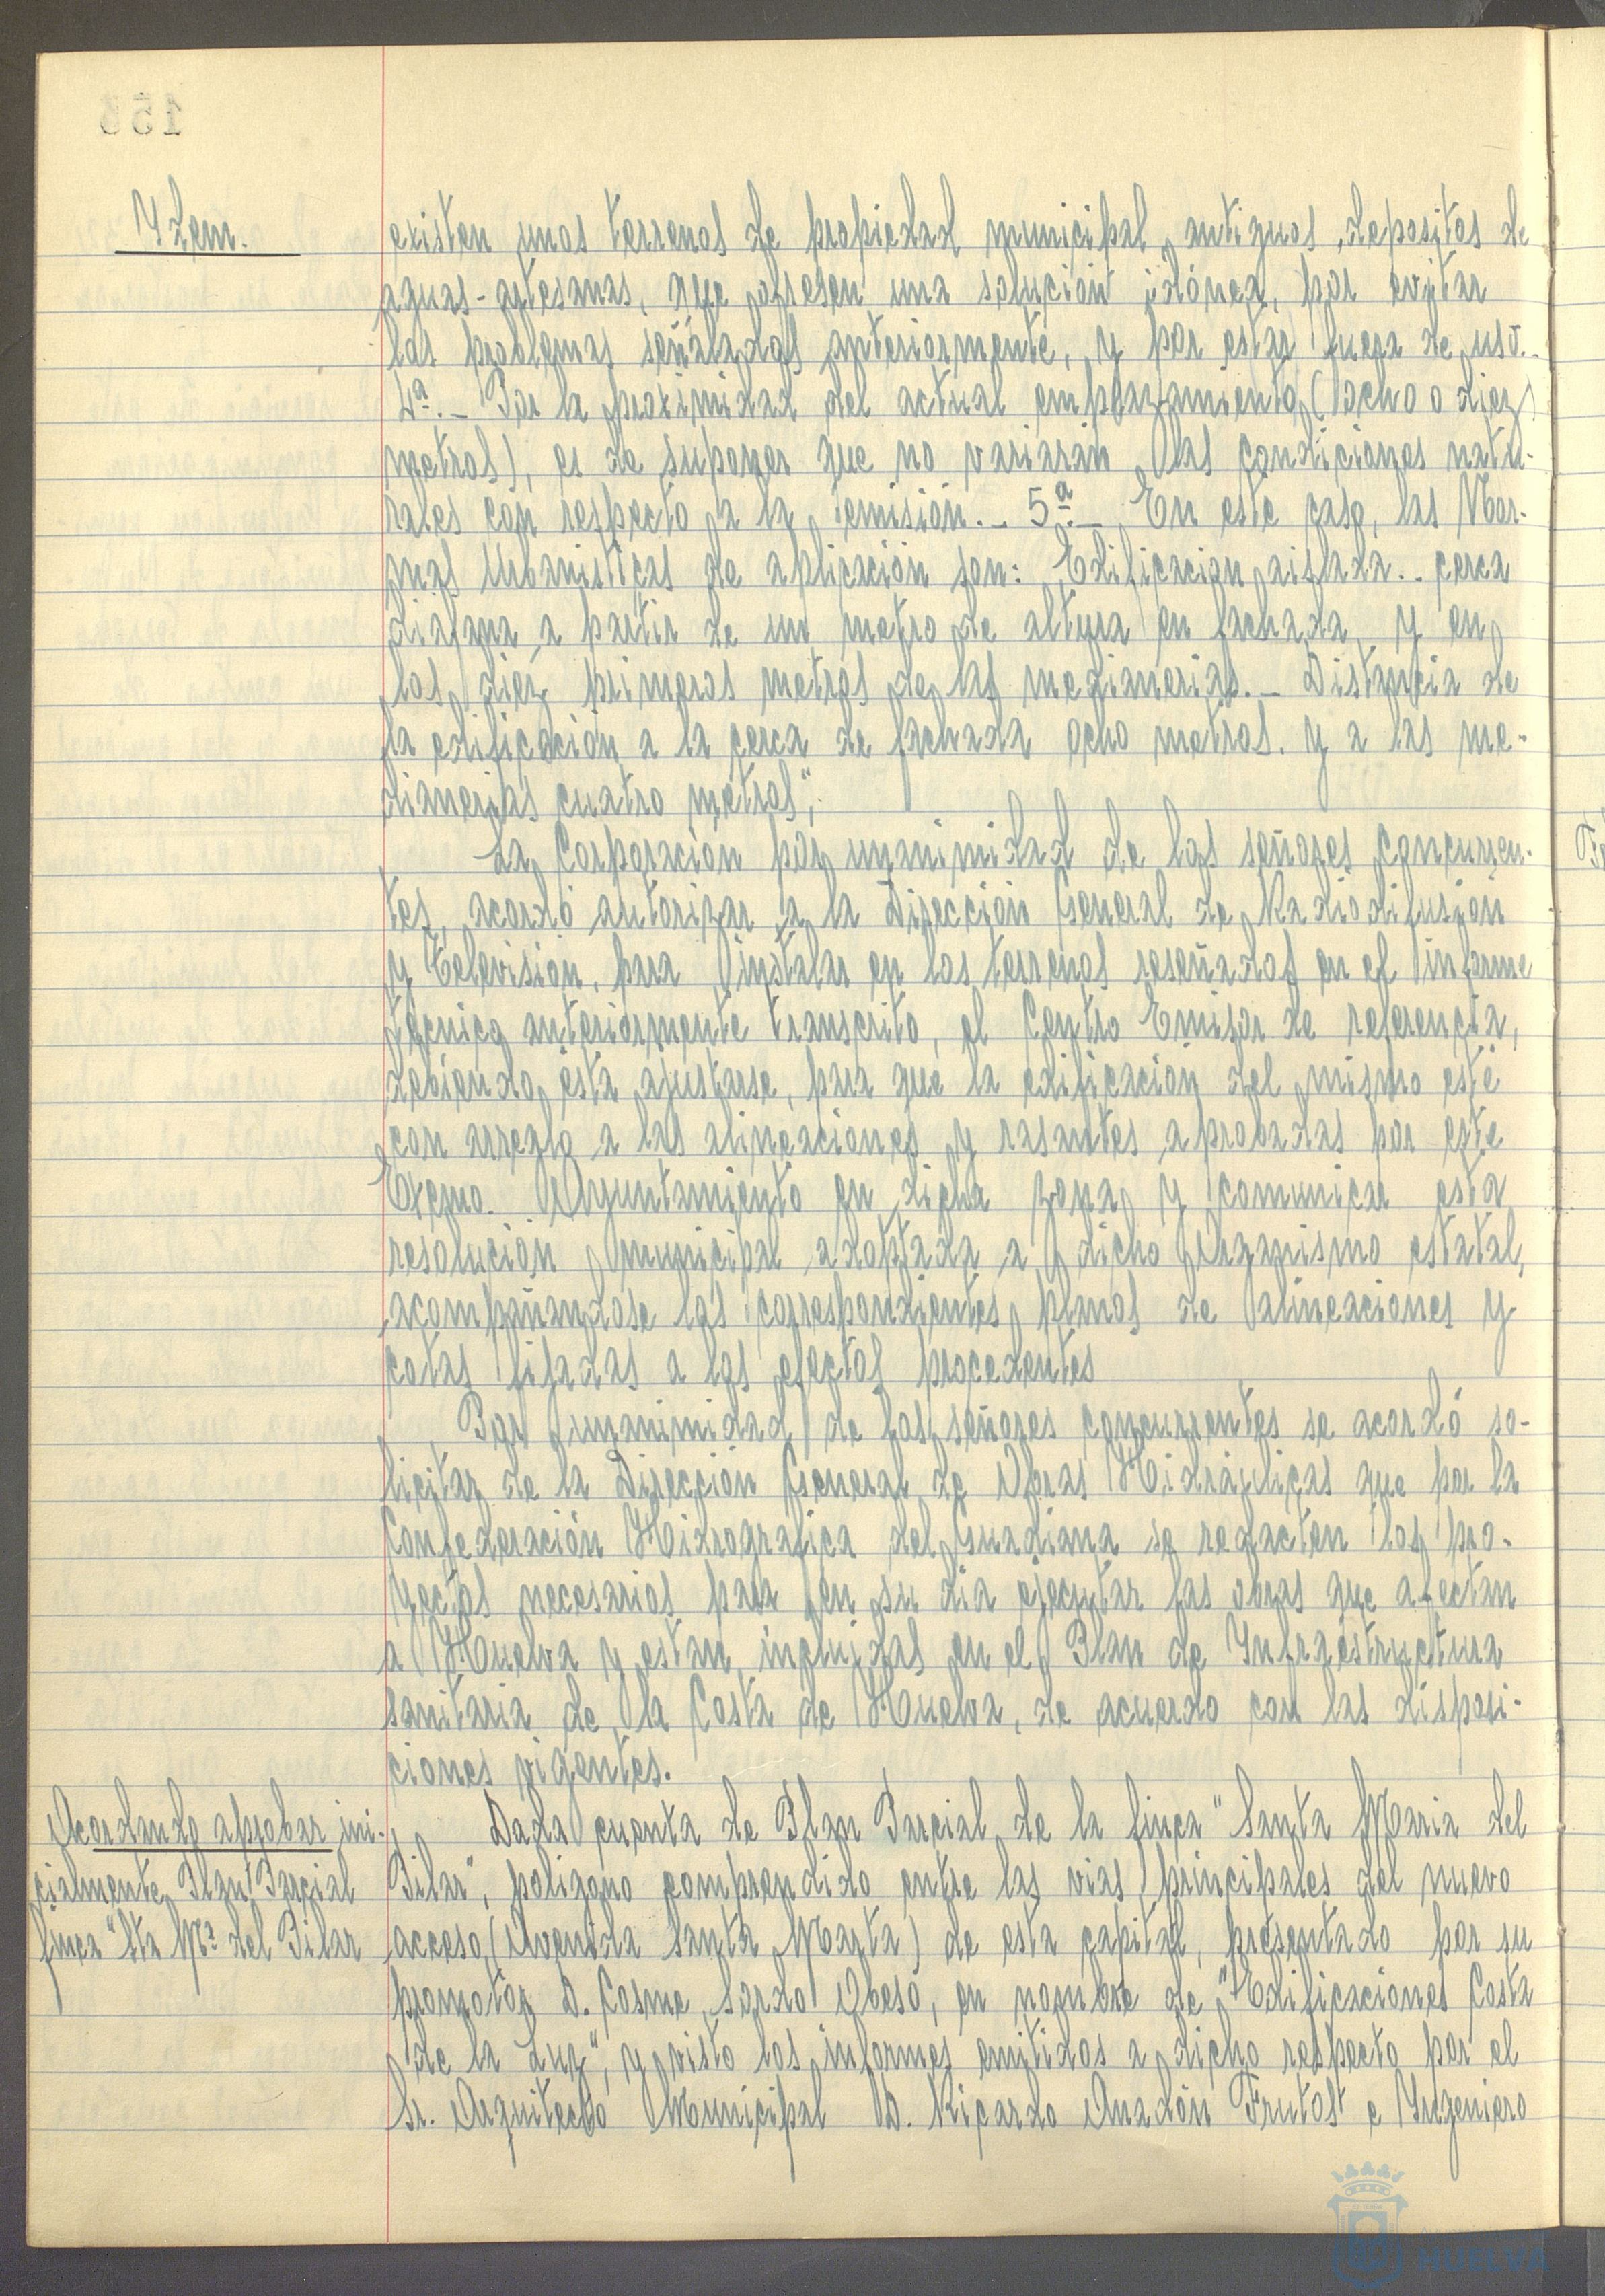 Ytem.
existen unos terrenos de propiedad municipal, antiguos depositos de
aguas-artesanas, que ofrecen una solución idónea, por evitar
los problemas señalados anteriormente, y por estar fuera de uso.-
4ª.- Por la proximidad del actual emplazamiento (ocho o diez
metros), es de suponer que no variarán las condiciones natu-
rales con respecto a la emisión.- 5ª.- En este caso, las Nor-
mas Urbanisticas de aplicación son: Edificacion aislada.- cerca
diafana a partir de un metro de altura en fachada, y en
los diez primeros metros de las medianerias.- Distancia de
la edificación a la cerca de fachada ocho metros, y a las me-
dianerias cuatro metros";
La Corporación por unanimidad de los señores concurren-
tes, acordó autorizar a la Dirección General de Radiodifusión
y Televisión, para instalar en los terrenos reseñados en el informe
técnico anteriormente transcrito, el Centro Emisor de referencia,
debiendo esta ajustarse, para que la edificación del mismo esté
con arreglo a las alineaciones y rasantes aprobadas por este
Excmo. Ayuntamiento en dicha zona, y comunicar esta
resolución municipal adoptada a dicho Organismo estatal,
acompañandose las correspondientes planos de alineaciones y
cotas fijadas a los efectos procedentes
Por unanimidad de los señores concurrentes se acordó so-
licitar de la Dirección General de Obras Hidráulicas que por la
Confederación Hidrografica del Guadiana se redacten los pro-
yectos necesarios para en su dia ejecutar las obras que afectan
a Huelva y estan incluidas en el Plan de Infraestructura
sanitaria de la Costa de Huelva, de acuerdo con las disposi-
ciones vigentes.
Acordando aprobar ini-
cialmente Plan Parcial
finca "Sta Mª del Pilar
Dada cuenta de Plan Parcial de la finca "Santa Maria del
Pilar", poligono comprendido entre las vias principales del nuevo
acceso (Avenida Santa Marta) de esta capital, presentado por su
promotor D. Cosme Sordo Obeso, en nombre de "Edificaciones Costa
de la Luz", y visto los informes emitidos a dicho respecto por el
Sr. Arquitecto Municipal D. Ricardo Anadón Frutos e Ingeniero
HUELVA